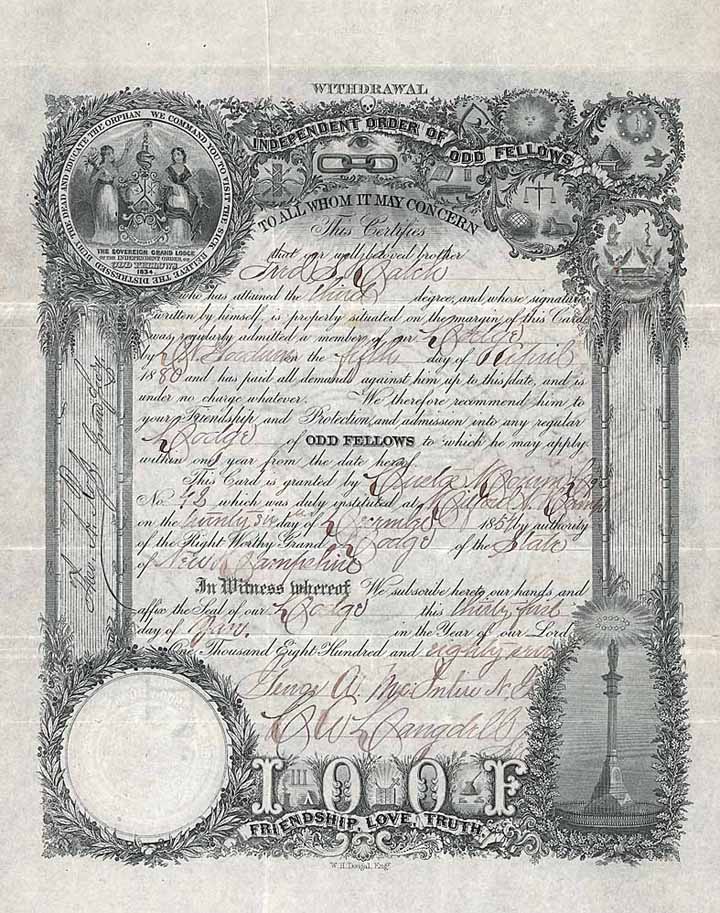 WITHDRAWAL
INDEPENDENT ORDER OF ODD FELLOWS
WE COMMAND YOU TO VISIT THE SICK, RELIEVE THE DISTRESSED, BURY THE DEAD AND EDUCATE THE ORPHAN
THE SOVEREIGN GRAND LODGE
OF THE INDEPENDENT ORDER OF
ODD FELLOWS
1834
TO ALL WHOM IT MAY CONCERN
This Certifies
that our well beloved brother
who has attained the third degree, and whose signature
written by himself, is properly situated on the margin of this Card
was regularly admitted a member of our Lodge
by the day of
1880 and has paid all demands against him up to this date, and is
under no charge whatever. We therefore recommend him to
your Friendship and Protection, and admission into any regular
Lodge of ODD FELLOWS to which he may apply
within one year from the date hereof
This Card is granted by
No. which was duly instituted at Milford
on the twenty six day of by authority
of the Right Worthy Grand Lodge of the State
of New Hampshire
In Witness whereof We subscribe hereto our hands and
affix the Seal of our Lodge this thirty first
day of in the Year of our Lord
One Thousand Eight Hundred and eighty seven
I O O F
FRIENDSHIP, LOVE, TRUTH.
W. H. Dougal, Eng.